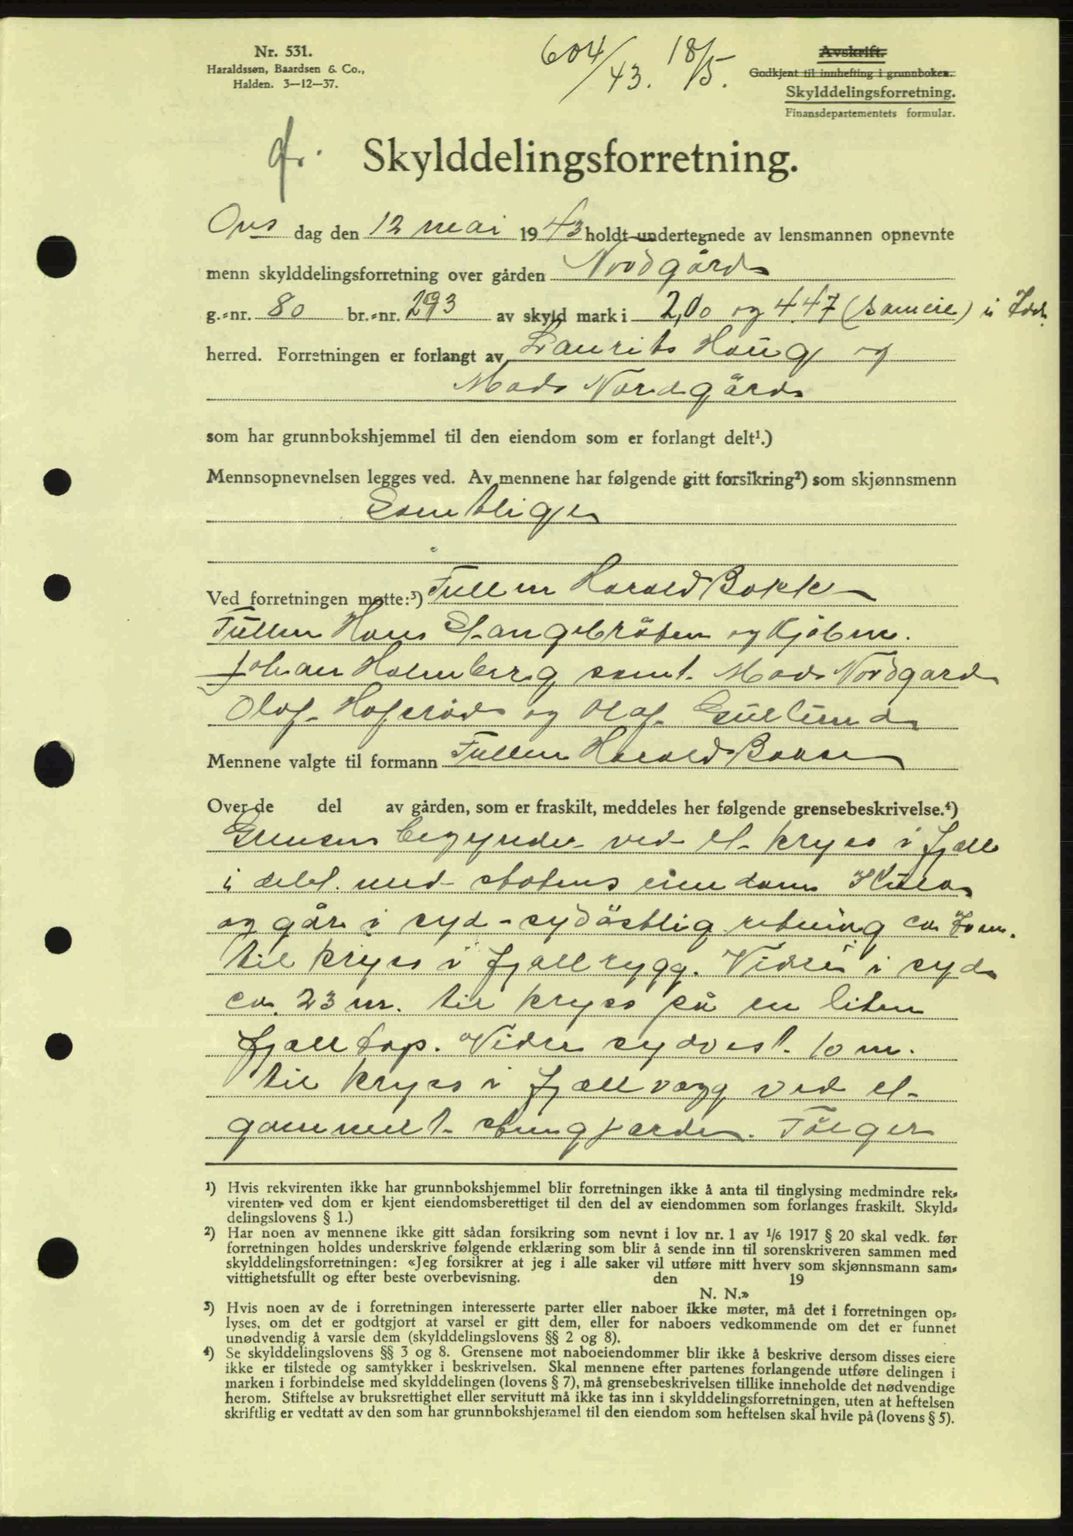 Nr. 531.
Haraldssøn, Baardsen & Co.,
Halden. 3—12—37.
604/43. 18/5.
Avskrift.
Godkjent til innhefting i grunnboken.
Skylddelingsforretning.
Finansdepartementets formular.
Skylddelingsforretning.
Ons dag den 12 mai 1943 holdt undertegnede av lensmannen opnevnte
menn skylddelingsforretning over gården Nordgård
g.-nr. 80 br.-nr. 293 av skyld mark i 2,00 og 4.47 (sameie) i Idd
herred. Forretningen er forlangt av Laurits Haug og
Mads Nordgård
som har grunnbokshjemmel til den eiendom som er forlangt delt¹.)
Mennsopnevnelsen legges ved. Av mennene har følgende gitt forsikring²) som skjønnsmenn
Samtlige
Ved forretningen møtte:³) Fullm Harald Bakke
Fullm Hans Stangebråten og Kjøbm.
Johan Holmberg samt Mads Nordgård
Olaf og Olaf
Mennene valgte til formann Fullm Harald Bakke
Over de del av gården, som er fraskilt, meddeles her følgende grensebeskrivelse.⁴)
Grensen begynder ved et kryss i fjell
i delet med statens eiendom
og går i syd-sydøstlig retning ca m.
til kryss i fjellrygg. Videre i syd
ca. 23 m. til kryss på en liten
fjelltop. Videre sydvest 10 m.
til kryss i fjellvegg ved et
gammelt stengjærde. Følger
¹) Hvis rekvirenten ikke har grunnbokshjemmel blir forretningen ikke å anta til tinglysing medmindre rek-
virenten ved dom er kjent eiendomsberettiget til den del av eiendommen som forlanges fraskilt. Skyld-
delingslovens § 1.)
²) Har noen av mennene ikke gitt sådan forsikring som nevnt i lov nr. 1 av 1/6 1917 § 20 skal vedk. før
forretningen holdes underskrive følgende erklæring som blir å sende inn til sorenskriveren sammen med
skylddelingsforretningen: «Jeg forsikrer at jeg i alle saker vil utføre mitt hverv som skjønnsmann sam-
vittighetsfullt og efter beste overbevisning. den 19
N. N.»
³) Hvis noen av de i forretningen interesserte parter eller naboer ikke møter, må det i forretningen op-
lyses, om det er godtgjort at varsel er gitt dem, eller for naboers vedkommende om det er funnet
unødvendig å varsle dem (skylddelingslovens §§ 2 og 8).
⁴) Se skylddelingslovens §§ 3 og 8. Grensene mot naboeiendommer blir ikke å beskrive dersom disses eiere
ikke er tilstede og samtykker i beskrivelsen. Skal mennene efter partenes forlangende utføre delingen i
marken i forbindelse med skylddelingen (lovens § 7), må grensebeskrivelsen tillike inneholde det nødvendige
herom. Stiftelse av bruksrettighet eller servitutt må ikke tas inn i skylddelingsforretningen, uten at heftelsen
skriftlig er vedtatt av den som har grunnbokshjemmel til den eiendom som heftelsen skal hvile på (lovens § 5).